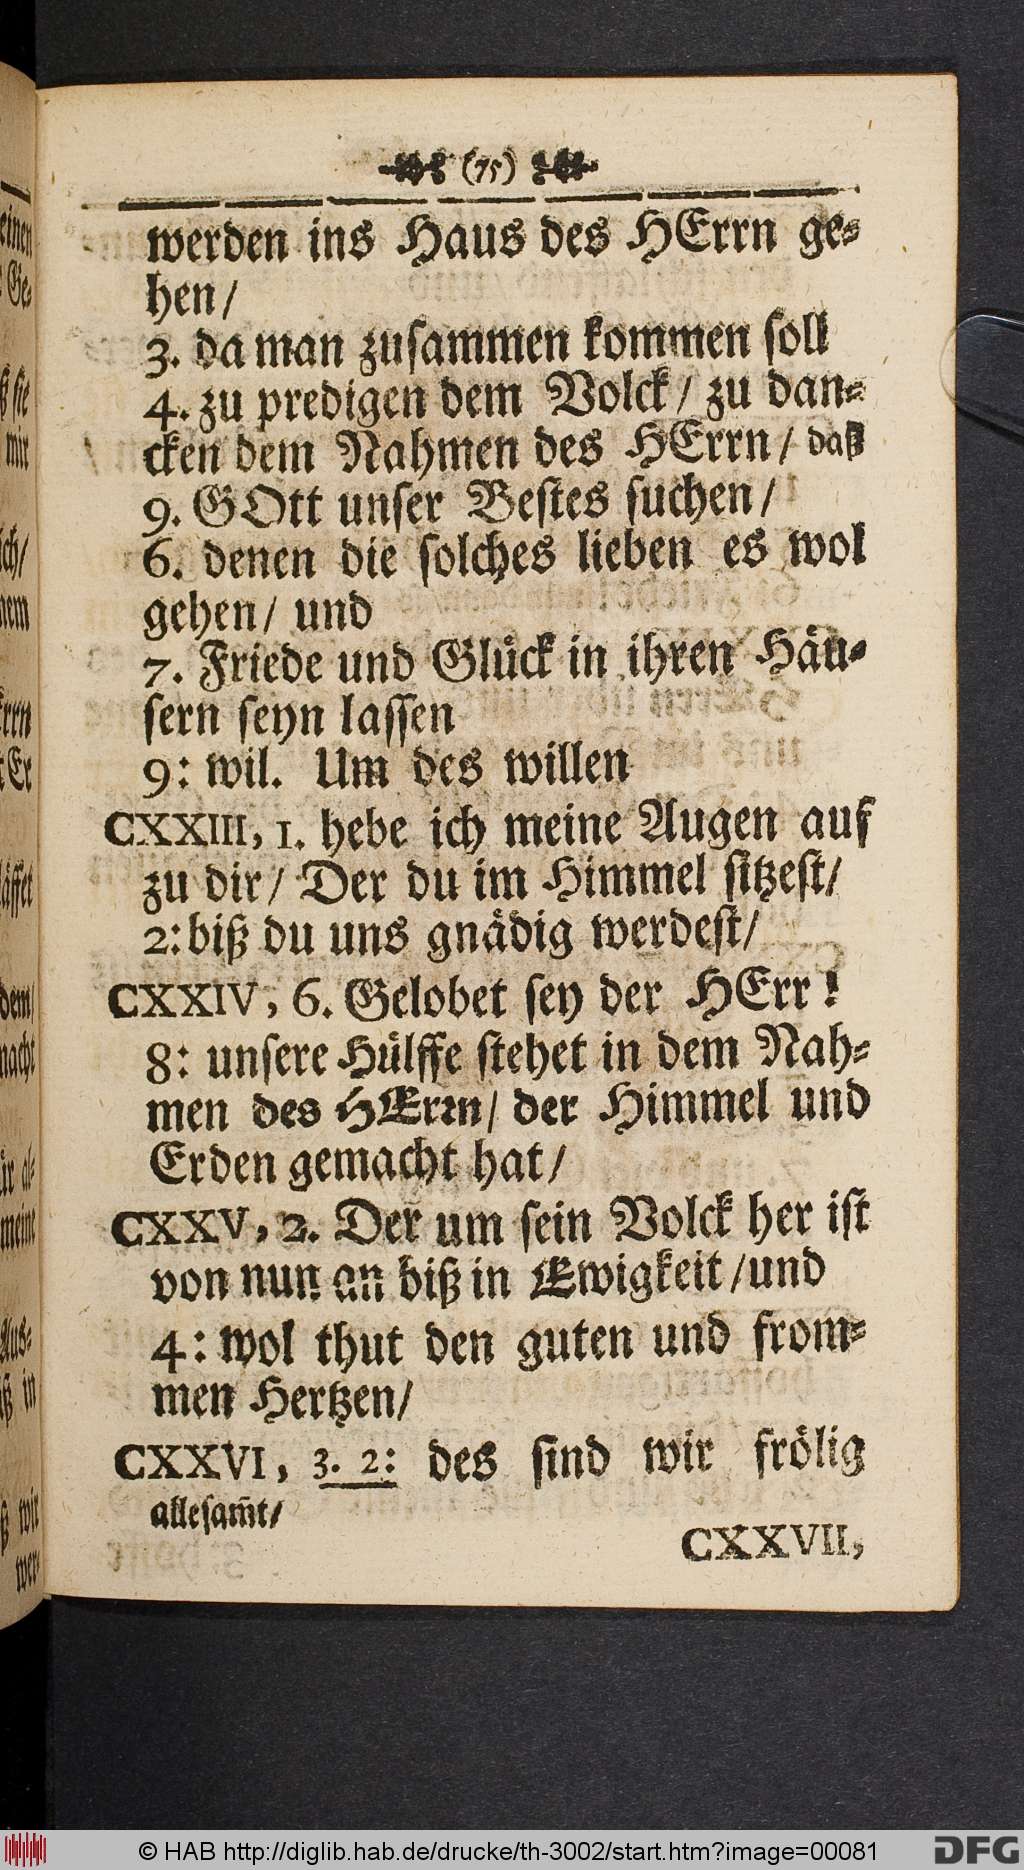 (75)
werden ins Haus des HErrn ge-
hen/
3. da man zusammen kommen soll
4. zu predigen dem Volck/ zu dan-
cken dem Nahmen des HErrn/ daß
9. GOtt unser Bestes suchen/
6. denen die solches lieben es wol
gehen/ und
7. Friede und Glück in ihren Häu-
sern seyn lassen
9: wil. Um des willen
CXXIII, 1. hebe ich meine Augen auf
zu dir/ Der du im Himmel sitzest/
2: biß du uns gnädig werdest/
CXXIV, 6. Gelobet sey der HErr!
8: unsere Hülffe stehet in dem Nah-
men des HErrn/ der Himmel und
Erden gemacht hat/
CXXV, 2. Der um sein Volck her ist
von nun an biß in Ewigkeit/und
4: wol thut den guten und from-
men Hertzen/
CXXVI, 3. 2: des sind wir frölig
allesam̃t/
CXXVII,
© HAB http://diglib.hab.de/drucke/th-3002/start.htm?image=00081
DFG